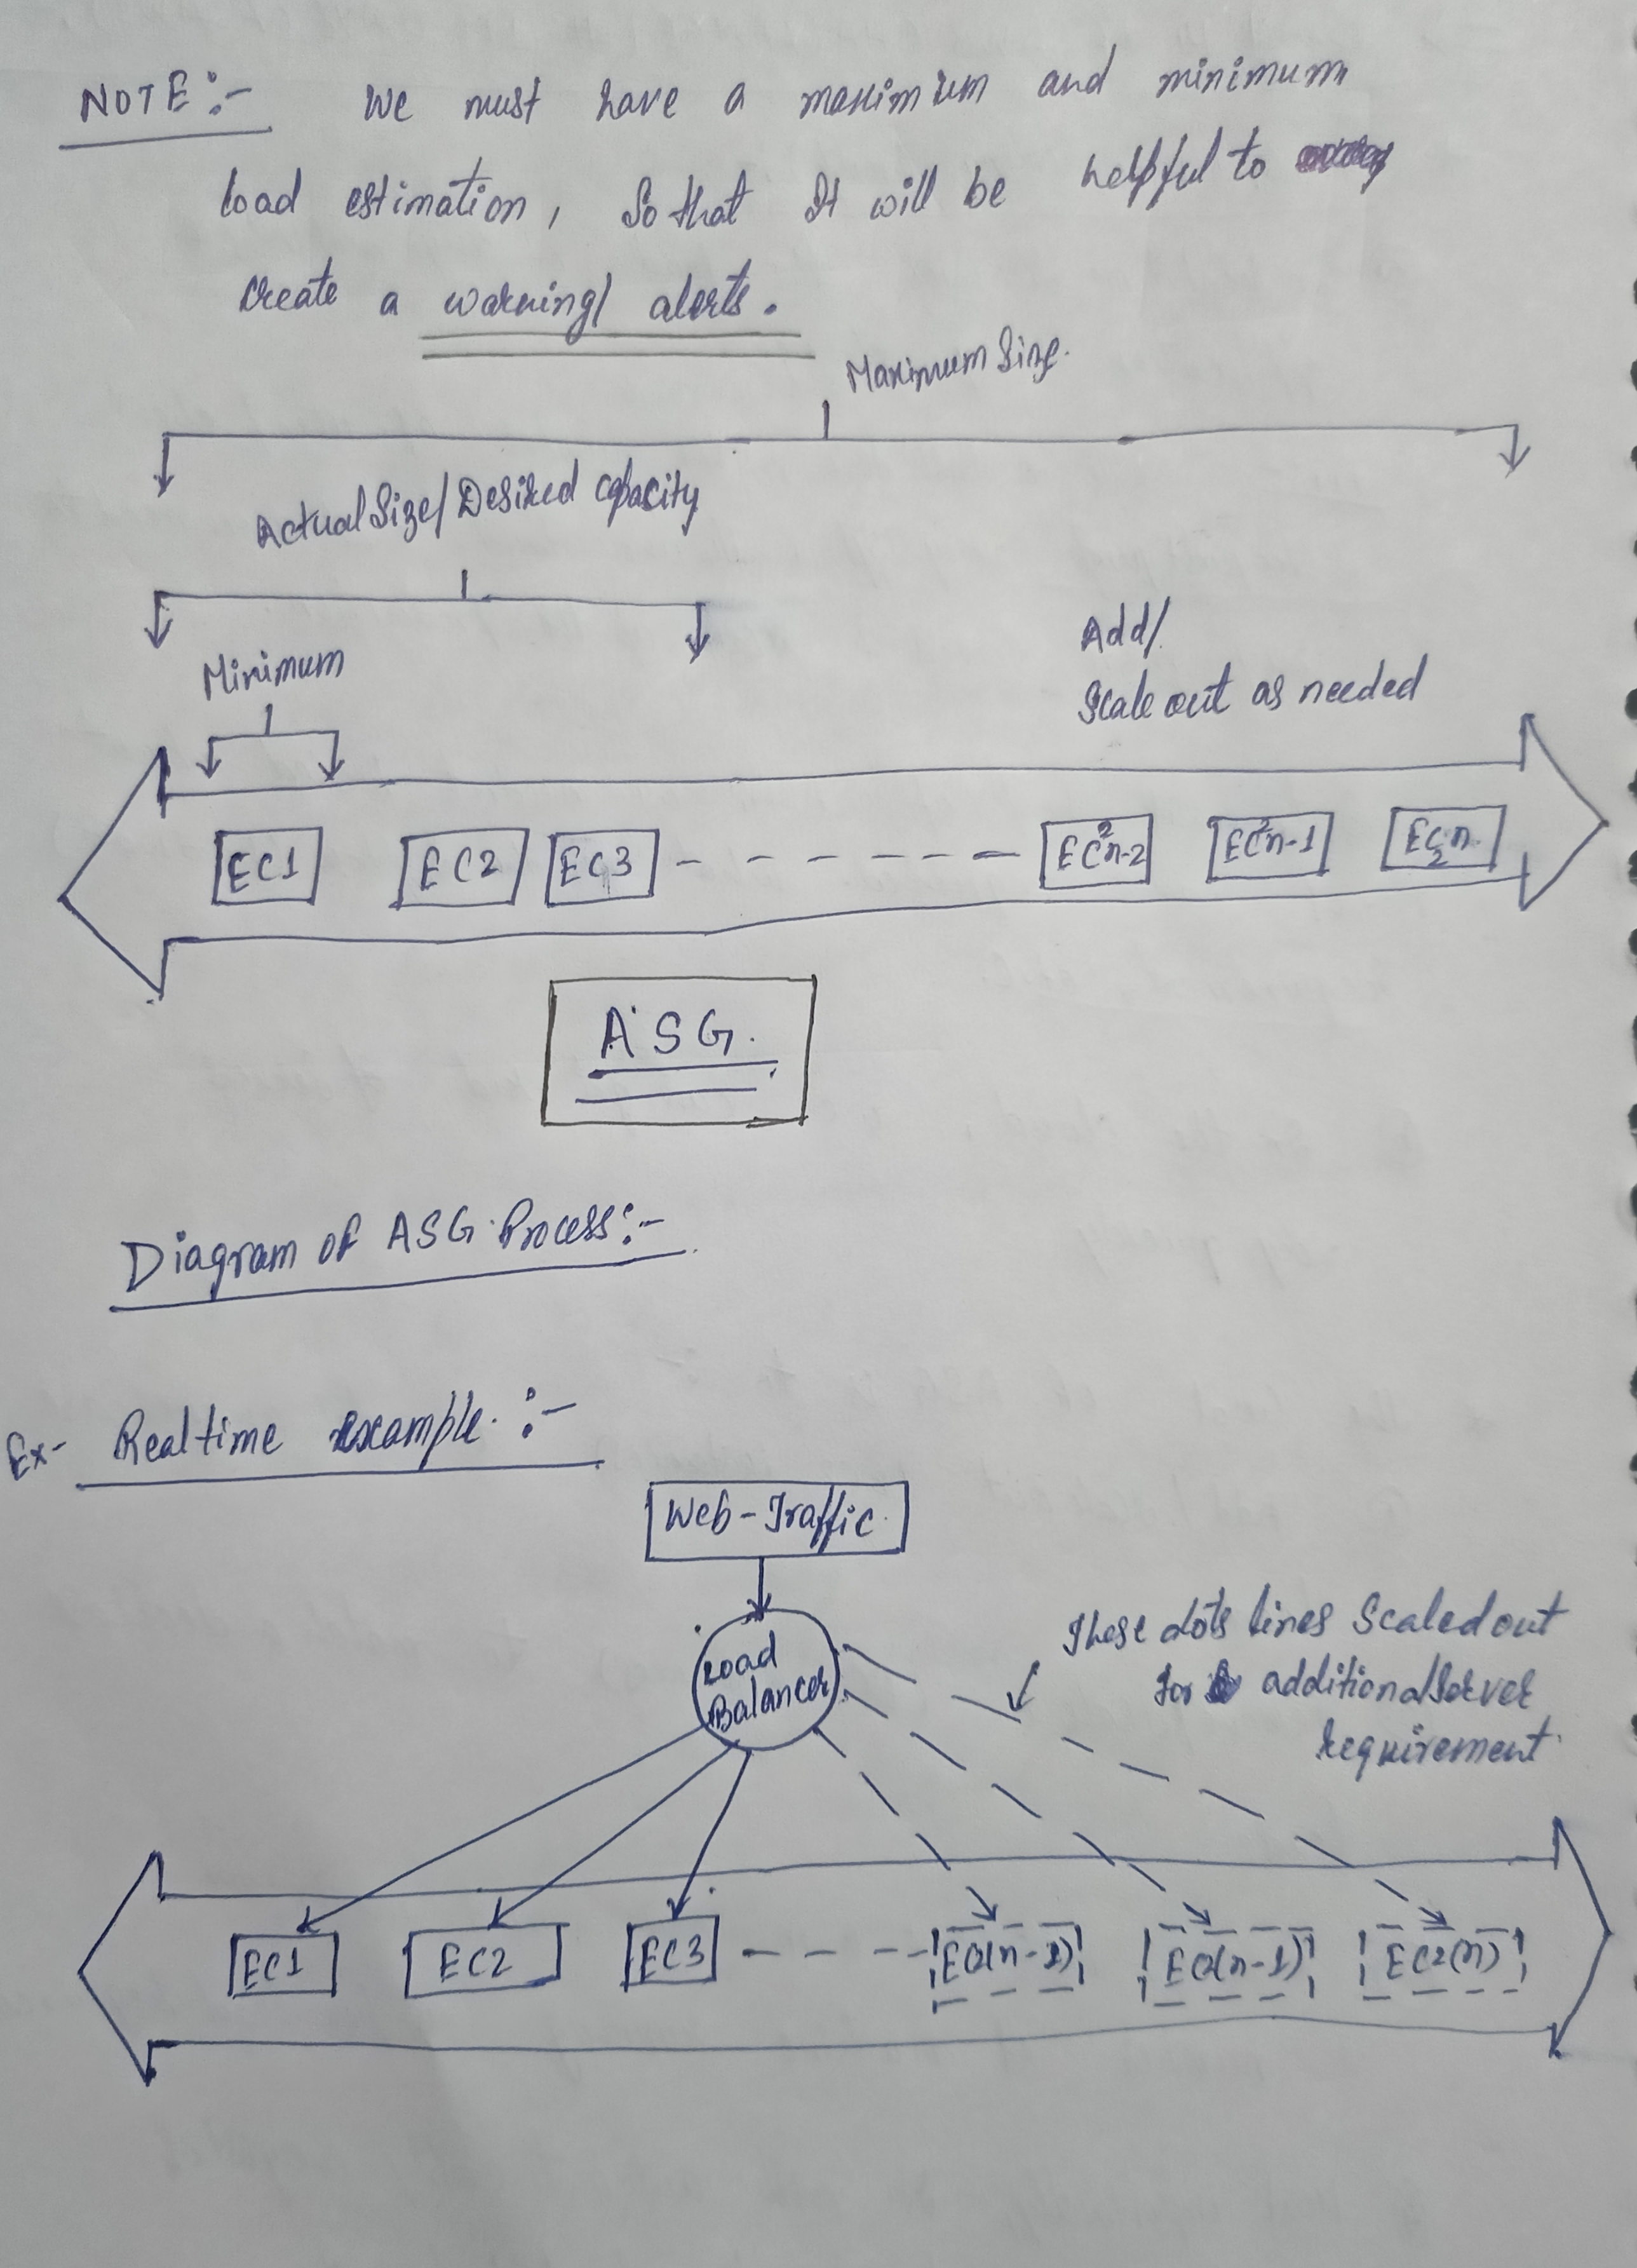 NOTE :- We must have a maximium and minimum
load estimation, So that It will be helpful to
create a warning/ alerts.
Maximum Size.
Actual Size/ Desired capacity
Minimum
Add/
Scale out as needed
EC1 EC2 EC3 - - - - - - - EC2n-2 EC2n-1 EC2n
ASG.
Diagram of ASG Process :-
Ex- Realtime example. :-
Web-Traffic.
Load
Balancer
These dots lines Scaled out
for additional server
requirement.
EC1 EC2 EC3 - - - - EC2(n-1) EC2(n)